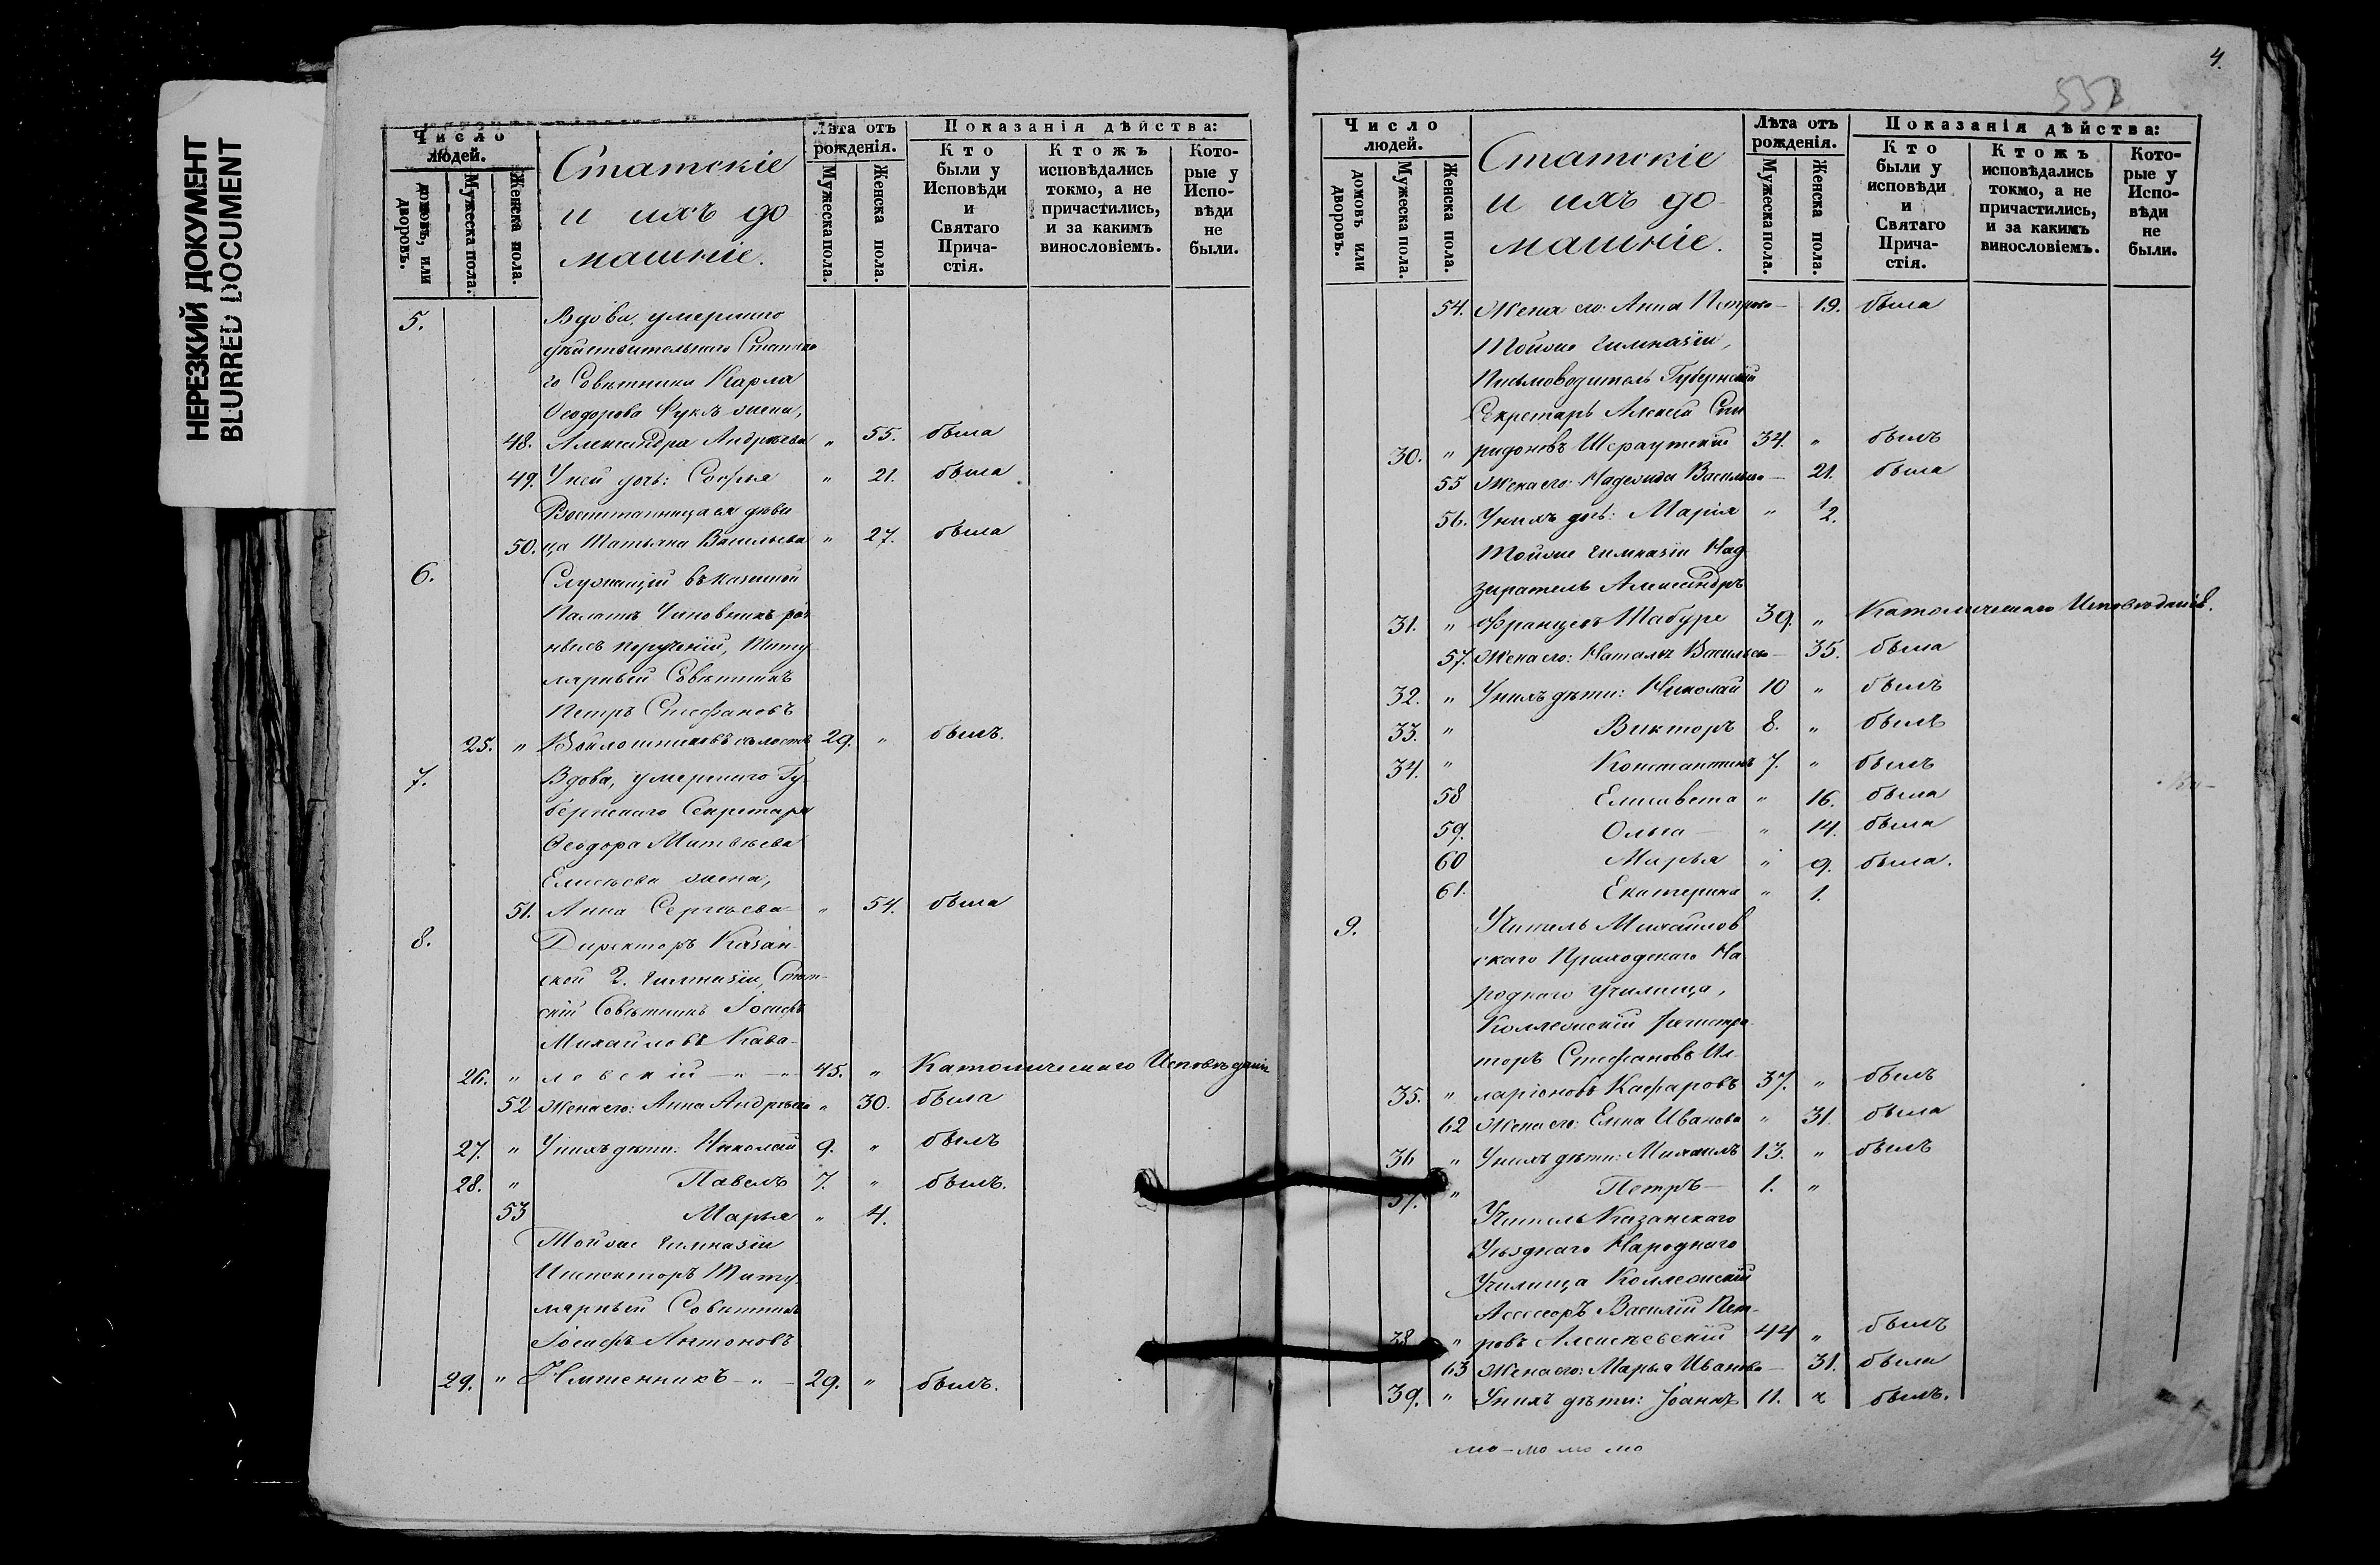 НЕРЕЗКИЙ ДОКУМЕНТ
BLURRED DOCUMENT
Число людей.
домовъ, или дворовъ.
Мужеска пола.
Женска пола.
Статскіе
и ихъ до
машніе.
Лѣта отъ рожденія.
Мужеска пола.
Женска пола.
Показанія дѣйства:
Кто были у Исповѣди и Святаго Прича-стія.
Ктожъ исповѣдались токмо, а не причастились, и за какимъ винословіемъ.
Кото-рые у Испо-вѣди не были.
5. Вдова, умершаго
дѣйствительнаго Статска
го Совѣтника Карла
Ѳеодорова Фукъ жена,
48. Александра Андреева " 55. была
49. У ней дочь: Софья " 21. была
Воспитанница ея дѣви
50. ца Татьяна Васильева " 27. была
6. Служащій въ казенной
Палатѣ Чиновникъ раз
ныхъ порученій, Титу
лярный Совѣтникъ
Петръ Стефановъ
25. " 29. " былъ.
7. Вдова, умершаго Гу-
бернскаго Секретаря
Ѳеодора Матвѣева
Елисѣева жена,
51. Анна Сергѣева " 54. была
8. Директоръ Казан-
ской 2. гимназіи, Стат-
скій Совѣтникъ Іосифъ
Михайловъ Кова-
26. " левскій - " - " 45. " Католическаго Исповѣданія
52 Жена его: Анна Андреева " 30. была
27. " У нихъ дѣти: Николай 9. " былъ
28. " Павелъ 7. " былъ.
53 Марья " 4.
Тойже гимназіи
Инспекторъ Титу
лярный Совѣтникъ
Іосифъ Антоновъ
29. " - " - 29. " былъ.
4.
Число людей.
домовъ или дворовъ.
Мужеска пола.
Женска пола.
Статскіе
и ихъ до-
машніе.
Лѣта отъ рожденія.
Мужеска пола.
Женска пола.
Показанія дѣйства:
Кто были у исповѣди и Святаго Прича-стія.
Ктожъ исповѣдались токмо, а не причастились, и за какимъ винословіемъ.
Кото-рые у Испо-вѣди не были.
54. Жена его: Анна Петрова - 19. была
Тойже гимназіи,
Письмоводитель Губернскій
Секретарь Алексѣй Спи
30. " ридоновъ 34. " былъ
55 Жена его: Надежда Васильева - 21. была
56. У нихъ дочь: Марія " 1/2.
Тойже гимназіи Над
зиратель Александръ
31. " Францовъ Табуре 39. " Католическаго Исповѣданія.
57. Жена его: Наталья Васильева - 35. была
32. " У нихъ дѣти: Николай 10 " былъ
33. " Викторъ 8. " былъ
34. " Константинъ 7. " былъ
58 Елисавета " 16. была
59. Ольга - " 14. была
60 Марья " 9. была.
61. Екатерина " 1.
9. Учитель Михайлов
скаго Приходскаго На
роднаго училища,
Коллежскій регистра
торъ Стефановъ Ил-
35. " ларіоновъ Кафаровъ 37. " былъ
62 Жена его: Елена Иванова " 31. была
36 " У нихъ дѣти: Михаилъ 13. " былъ
37. " Петръ - 1. "
Учитель Казанскаго
Уѣзднаго Народнаго
Училища Коллежскій
Асессоръ Василій Пет-
38 " ровъ 44 " былъ
63 Жена его: Марья Иванова - 31. была
39. " У нихъ дѣти: Іоаннъ 11. " былъ.